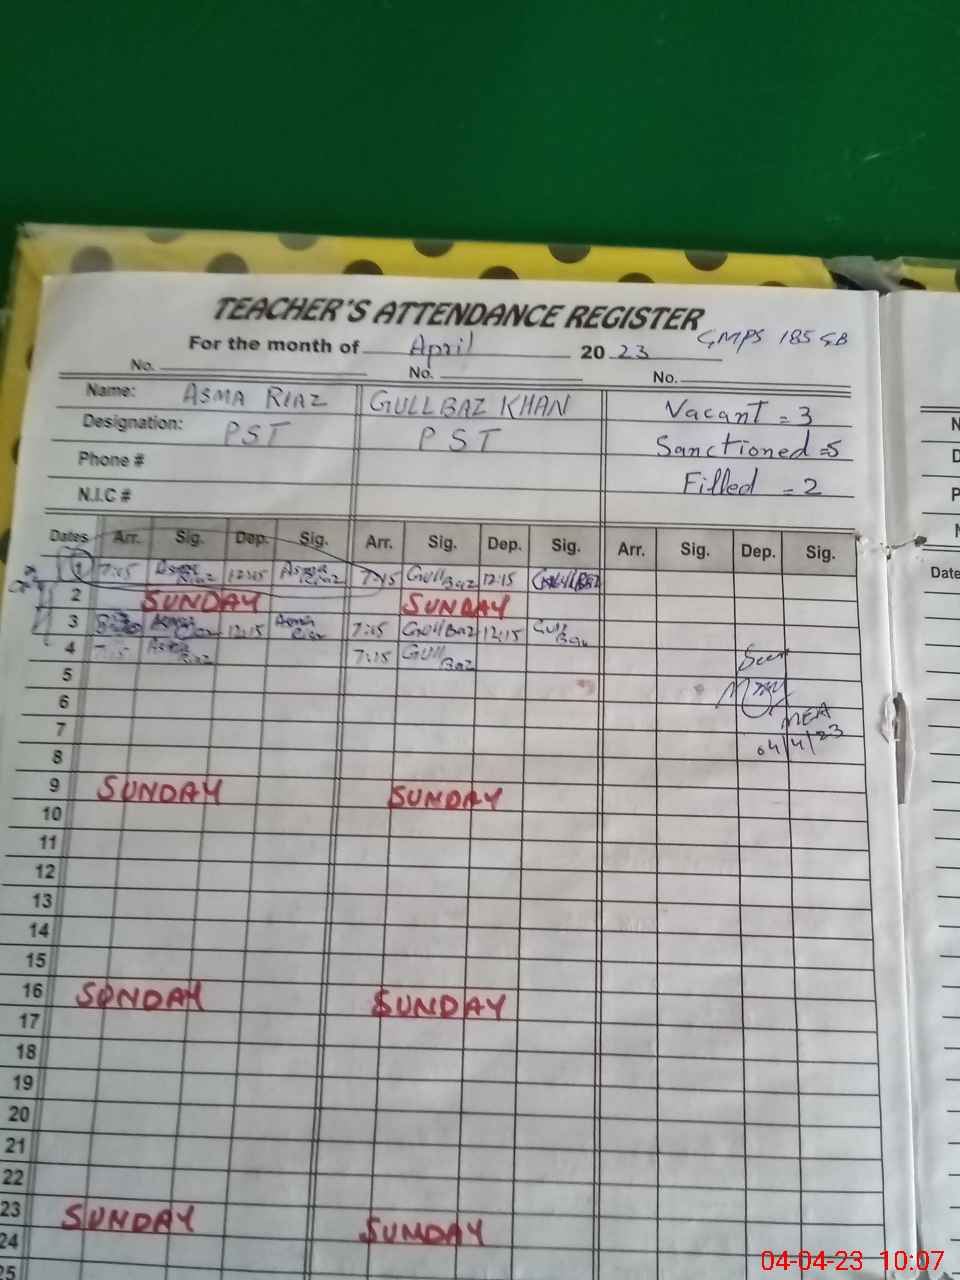 TEACHER'S ATTENDANCE REGISTER
For the month of April 20 23 GMPS 185 GB
No. No. No.
Name: ASMA RIAZ GULLBAZ KHAN Vacant = 3
Designation: PST PST Sanctioned = 5
Phone # Filled = 2
N.I.C #
Dates Arr. Sig. Dep. Sig. Arr. Sig. Dep. Sig. Arr. Sig. Dep. Sig.
1 7:15 Asma Riaz 12:15 Asma Riaz 7:15 Gull Baz 12:15 Gull Baz
2 SUNDAY SUNDAY
3 12:15 Asma Riaz 7:15 Gull Baz 12:15 Gull Baz
4 7:15 Asma Riaz 7:15 Gull Baz
Seen
5
6
MEA
7
04/4/23
8
9 SUNDAY SUNDAY
10
11
12
13
14
15
16 SUNDAY SUNDAY
17
18
19
20
21
22
23 SUNDAY SUNDAY
24
25
N
D
P
N
Date
04-04-23 10:07